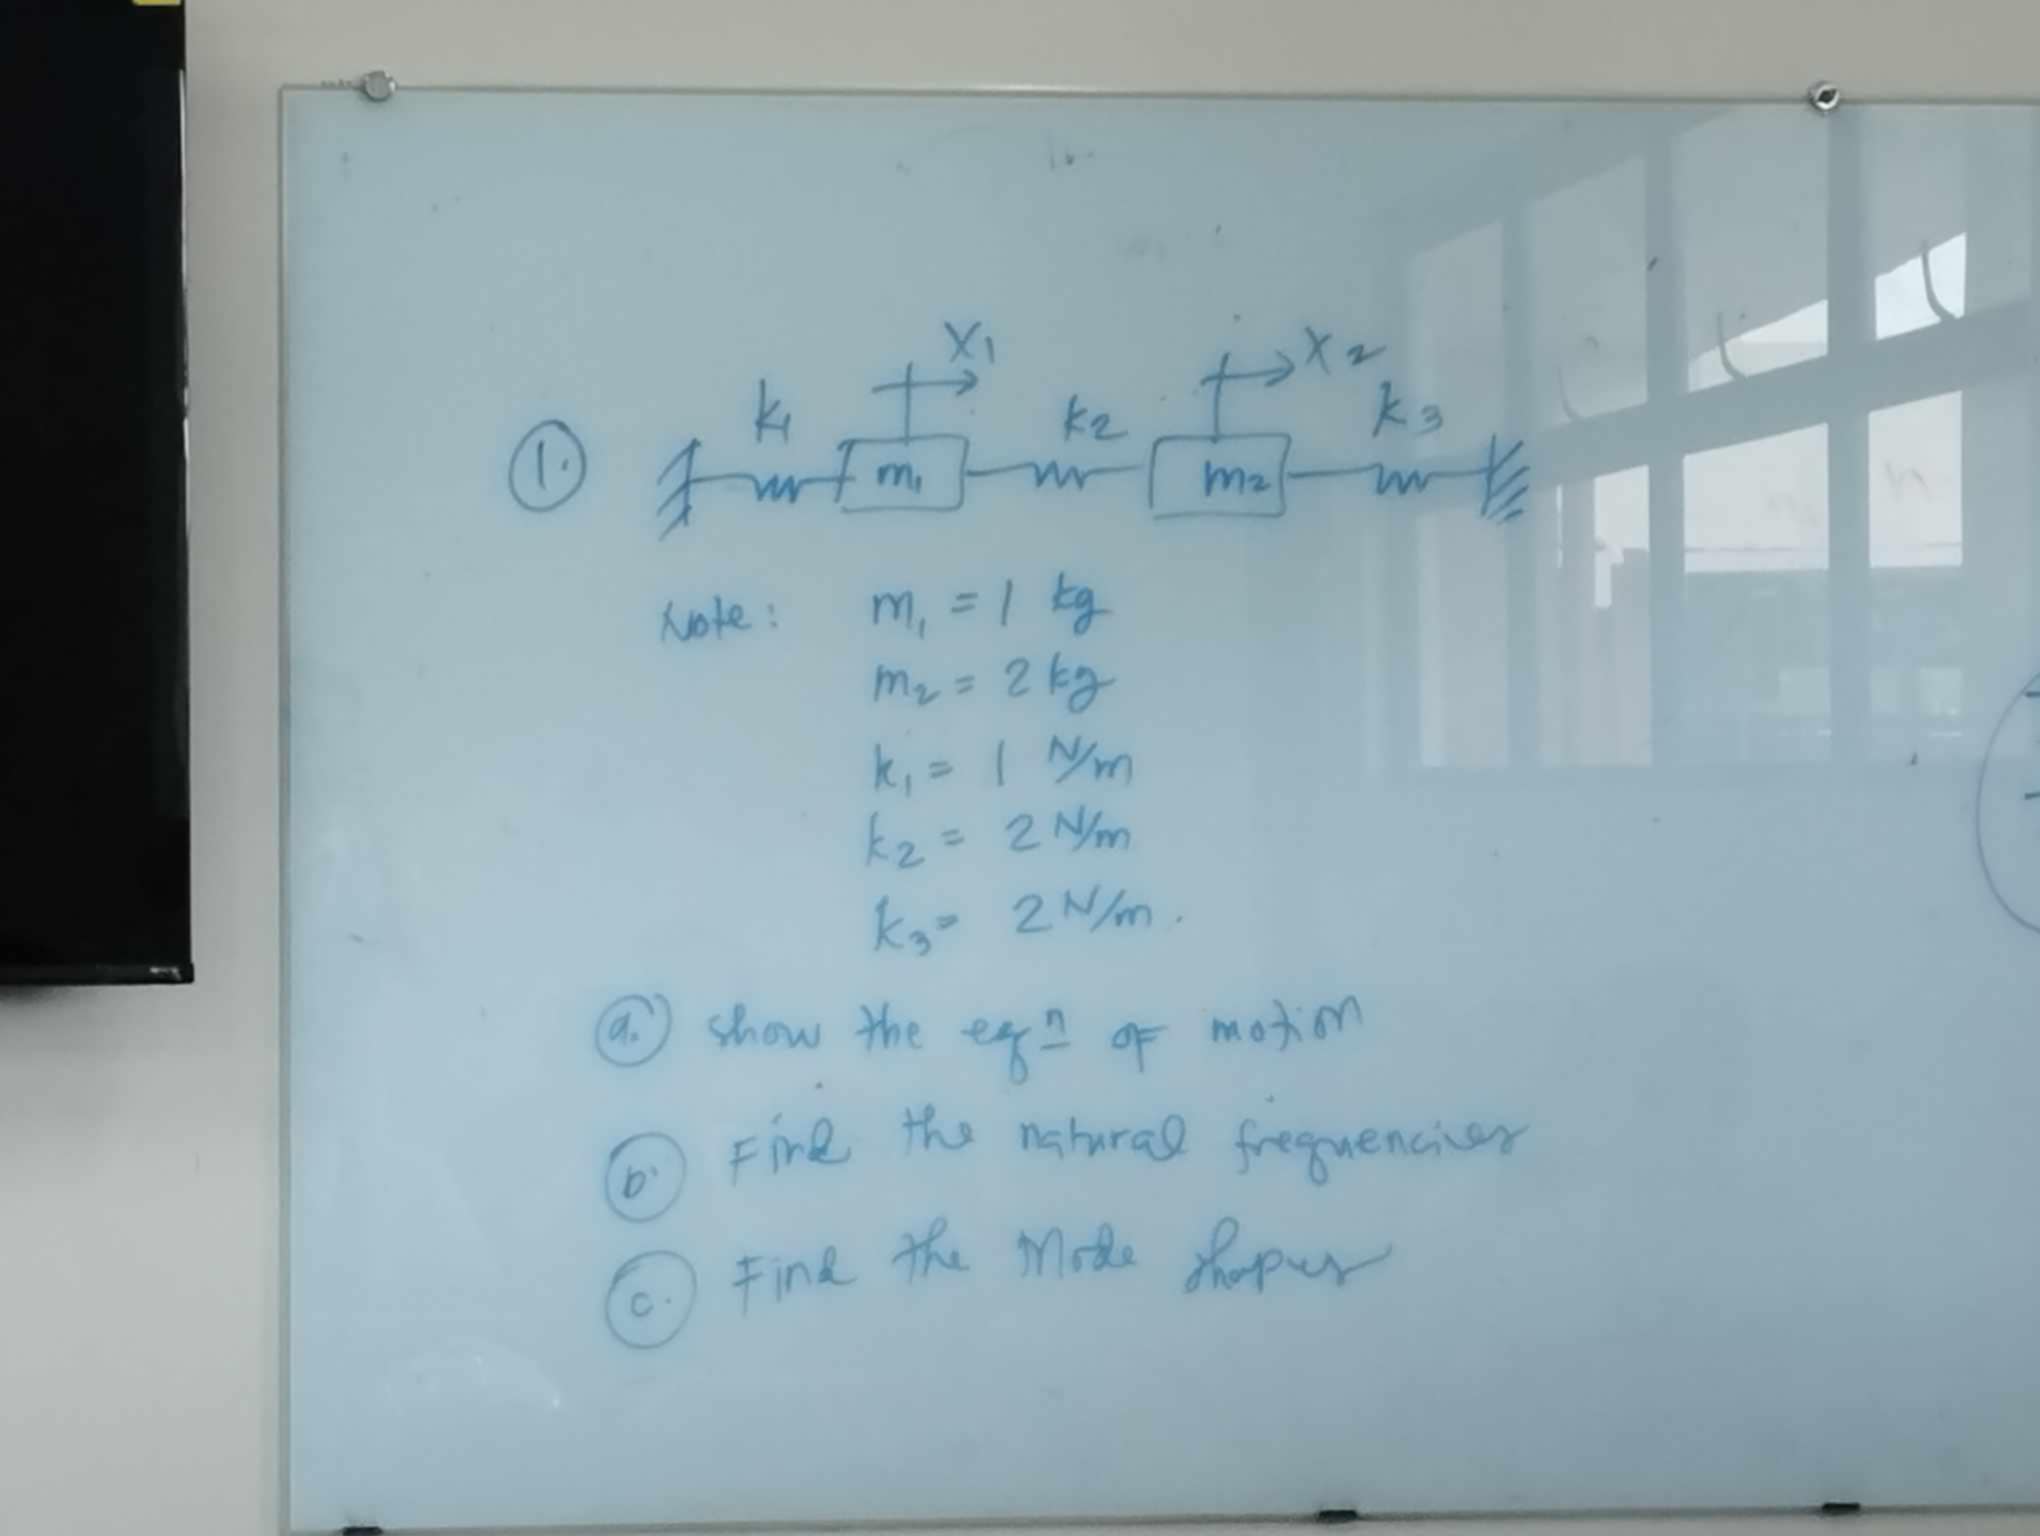 X1 X2
k1 k2 k3
1. m1 m2
Note: m1 = 1 kg
m2 = 2 kg
k1 = 1 N/m
k2 = 2 N/m
k3 = 2 N/m.
a. show the eqn of motion
b. Find the natural frequencies
c. Find the Mode shapes